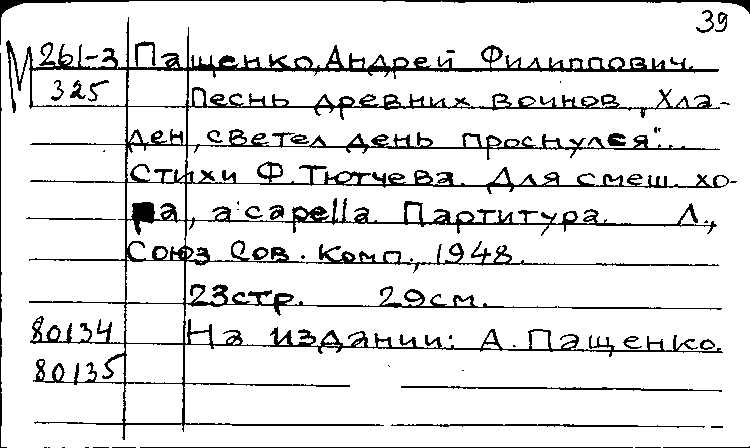 39
М 261-3 Пащенко, Андрей Филиппович.
325 Песнь древних воинов „Хла-
ден, светел день проснулся"...
Стихи Ф. Тютчева. Для смеш. хо-
ра, a capella. Партитура. Л.,
Союз Сов. Комп., 1948.
23стр. 29см.
80134 На издании: А. Пащенко.
80135